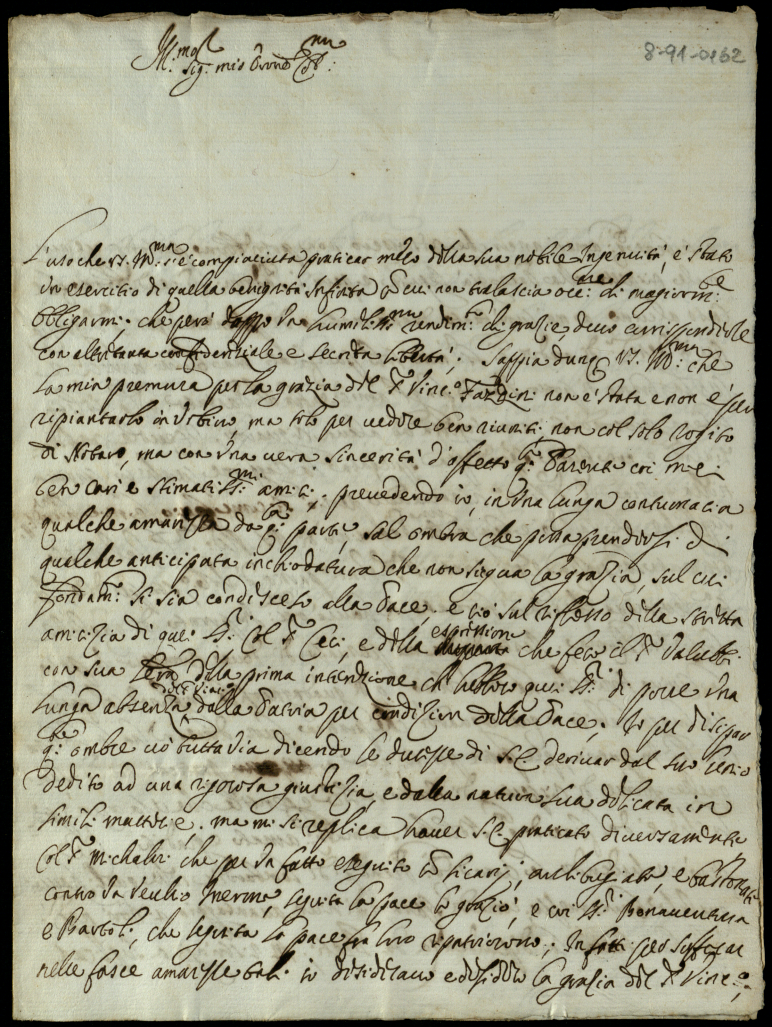 8-91-0162
Ill.mo
Sig.r mio Pron Col.mo
L'uso che VS. Ill.ma s'è compiaciuta praticar meco della sua nobile Ingenuità, è stato
un esercitio di quella benignità infinita con cui non tralascia occ.ne di magiorm.te
obligarmi. che però doppo un humiliss.mo rendim.to di grazie, devo corrisponderle
con altretanta confidenziale e secreta libertà; Sappia dunq. VS. Ill.ma che
la mia premura per la grazia del S.r Vinc.o Fazzini non è stata e non è per
ripiantarlo in Urbino, ma solo per vedere ben riuniti non col solo rogito
di Notaro, ma con una vera sincerità d'affetto q.ti Parenti coi miei
ben cari e stimatiss.mi amici, prevedendo io, in una lunga contumacia
qualche amarezza da q.ta parte, sul ombra che possa prendersi di
qualche anticipata inchiodatura che non siegua la grazia, sul cui
fondam.to si sia condisceso alla Pace, e ciò sul riflesso della stretta
amicizia di quei SS.ri col S.r Ceci, e della espressione che fece il S.r Valutti
con sua della prima intenzione ch'hebbero quei SS.ri di porre una
lunga absenza del S.r Vinc.o dalla Patria per condizion della Pace. Io per dissipar
q.te ombre vò tuttavia dicendo le durezze di S.E. derivar dal suo Genio
dedito ad una rigorosa giustizia, e dalla natura sua delicata in
simili matterie, ma mi si replica haver S.E. praticato diversamente
col S.r Michalvi che per un fatto eseguito con sicarij, archibugiate, e bastonate
contro un Vechio inerme, seguita la pace lo graziò, e coi SS.ri Bonaventura
e Bartoli, che seguita la pace fra loro ripatriorono; In fatti per soffocar
nelle fasce amarezze tali io desiderano e desidero la grazia del S.r Vinc.o,